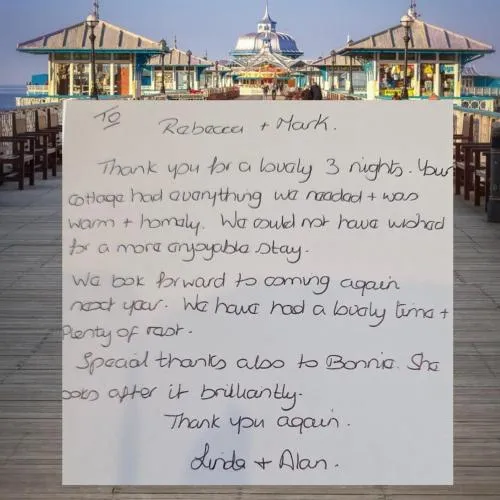 To
Rebecca + Mark.
Thank you for a lovely 3 nights. Your
cottage had everything we needed + was
warm + homely. We could not have wished
for a more enjoyable stay.
We look forward to coming again
next year. We have had a lovely time +
plenty of rest.
Special thanks also to Bonnie. She
looks after it brilliantly.
Thank you again.
Linda + Alan.